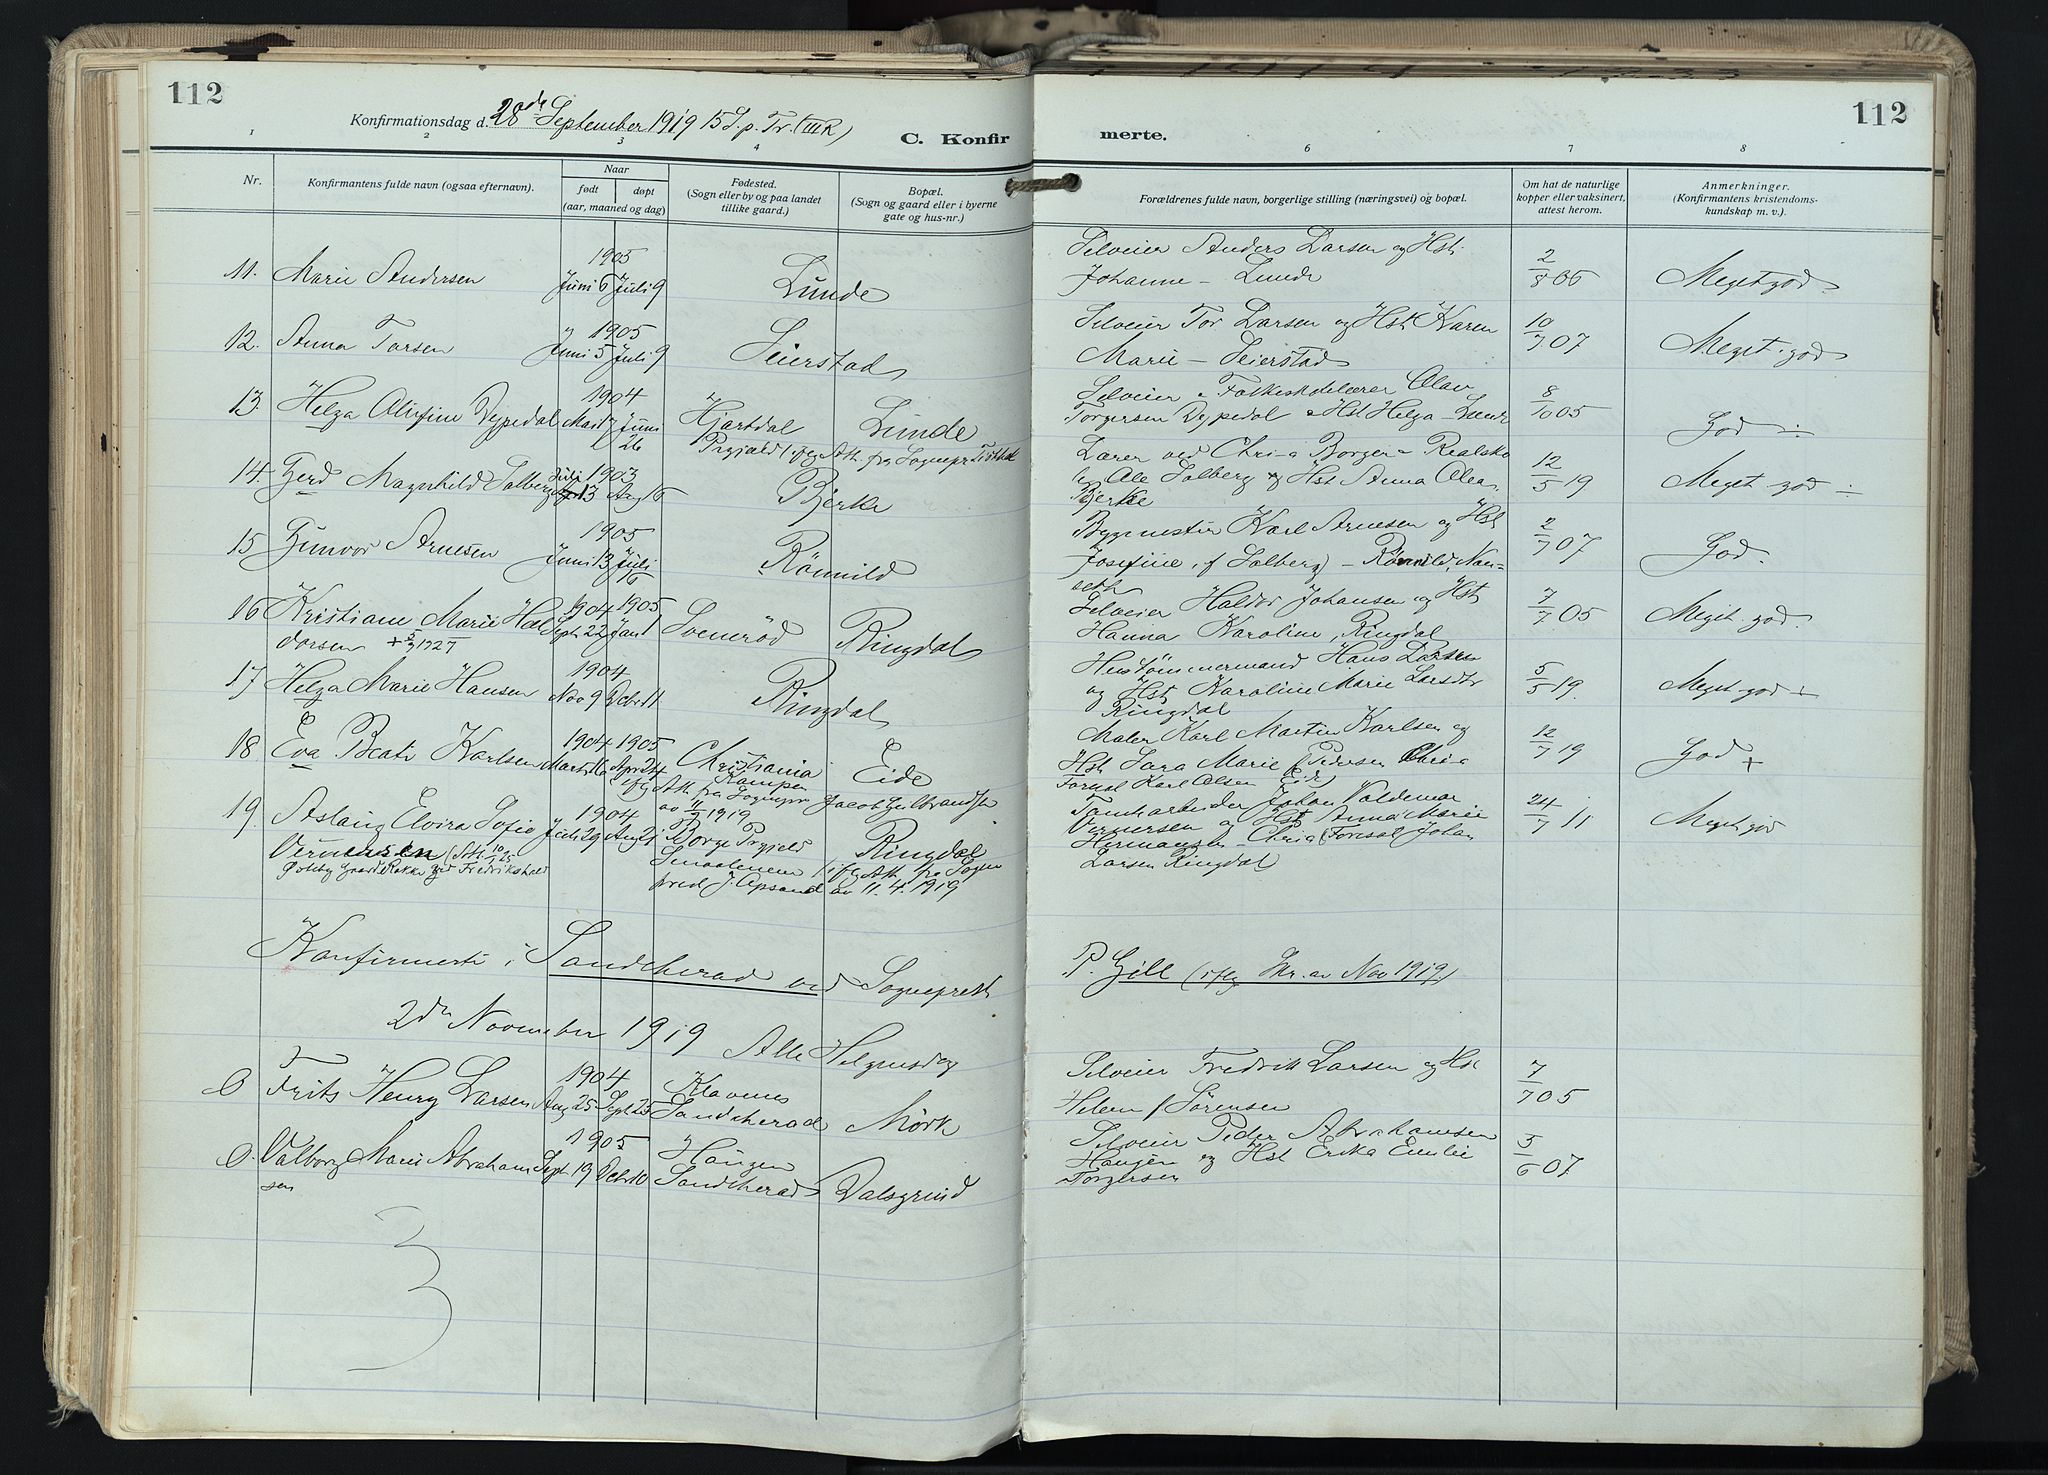 112
Konfirmationsdag d. 28de September 1919 15 S. p. Tr. (III R)
C. Konfir
merte.
112
1 2 3 4 6 7 8
Nr.
Konfirmantens fulde navn (ogsaa efternavn).
Naar
født
døpt
(aar, maaned og dag)
Fødested.
(Sogn eller by og paa landet
tillike gaard.)
Bopæl.
(Sogn og gaard eller i byerne
gate og hus-nr.)
Forældrenes fulde navn, borgerlige stilling (næringsvei) og bopæl.
Om hat de naturlige
kopper eller vaksinert,
attest herom.
Anmerkninger.
(Konfirmantens kristendoms-
kundskap m. v.).
1905
11. Marie Andersen Juni 6 Juli 9 Lunde
Selveier Anders Larsen og Hst.
Johanne – Lunde
2/8 06 Meget god
1905
12. Anna Torsen Juni 5 Juli 9 Seierstad
Selveier Tor Larsen og Hst Karen
Marie – Seierstad
10/7 07 Meget god
1904
13. Helga Olufine Vypedal Mai Juni 26 Hjartdal Lunde
Prgjæld
Selveier Folkeskolelærer Olav
Torgersen Vypedal Hst Helga Lunde
8/10 05 God
1903
14. Gerd Magnhild Solberg Juli 13 Aug 16 Bjerke
Lærer ved Chri-a Borger- Realsko
le Ole Solberg og Hst Anna Olea
Bjerke
12/5 19 Meget god
1905
15 Gunvor Arnesen Juni 13 Juli 16 Römild
Byggmester Karl Arnesen og Hst
Josefine, f Solberg) – Römild, Nan-
seth
2/7 07 God.
1904 1905
16 Kristiane Marie Hal Sept. 22 Jan 1 Svenerød Ringdal
dorsen 1927
Selveier Haldor Johansen og Hst
Hanna Karoline, Ringdal
7/7 05 Meget god
1904
17 Helga Marie Hansen Nov 9 Dcbr 11 Ringdal
Hustömmermand Hans Larsen
og Hst Karoline Marie Larsdtr
Ringdal
5/5 19. Meget god +
1904 1905
18. Eva Beate Karlsen Marts 16 Apr 24 Christiania Eide
Kampen
ifg Att. fra Sognepr
av 11/7 1919
Maler Karl Martin Karlsen og
Hst Sara Marie f Pedersen Chria
Forsat Karl Olsen Eide)
12/7 19 God +
1904
19. Aslaug Elvira Sofie Juli 29 Aug 21 Borge Prgjeld Ringdal
Vernersen (Att. 10/1 25
Smaalenene ifg Att. fra Sogne
pred J. Apsand av 11. 4. 1919
Tomtarbeider Johan Valdemar
Vernersen og Hst Anna Marie
Hermansen – Chria (Foresat Johan
Larsen Ringdal
24/7 11 Meget god
Konfirmerte i Sandeherad ved Sogneprest
P. Gill (ifg Mr. av Nov 1919)
2den November 1919 Alle Helgensdag
1904
0 Frits Henry Larsen Aug 25 Sept 25 Klavenes
Sandeherad Mörk
Selveier Fredrik Larsen og Hst
Helene f Sørensen
7/7 05
1905
0. Valborg Marie Abraham Sept 19 Dcbr 10 Haugen
sen Sandeherad Valsgrind
Selveier Peder Abrahamsen
Haugen og Hst Erika Emilie
Torgersen
5/6 07